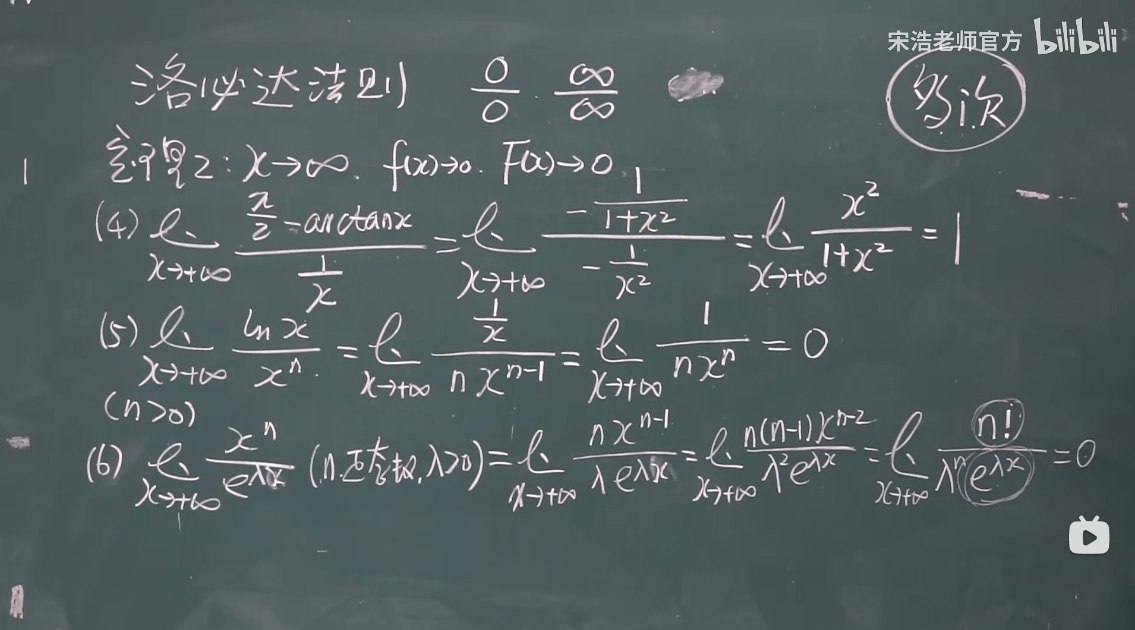 宋浩老师官方 bilibili
洛必达法则 0/0 . ∞/∞
多次
定理2: x→∞. f(x)→0. F(x)→0
(4) lim x→+∞ (π/2 - arctanx)/(1/x) = lim x→+∞ (-1/(1+x²))/(-1/x²) = lim x→+∞ x²/(1+x²) = 1
(5) lim x→+∞ ln x/xⁿ = lim x→+∞ (1/x)/(n xⁿ⁻¹) = lim x→+∞ 1/(n xⁿ) = 0
(n>0)
(6) lim x→+∞ xⁿ/e^(λx) (n.正整数, λ>0) = lim x→+∞ n xⁿ⁻¹/(λ e^(λx)) = lim x→+∞ n(n-1)xⁿ⁻²/(λ² e^(λx)) = lim x→+∞ n!/(λⁿ e^(λx)) = 0